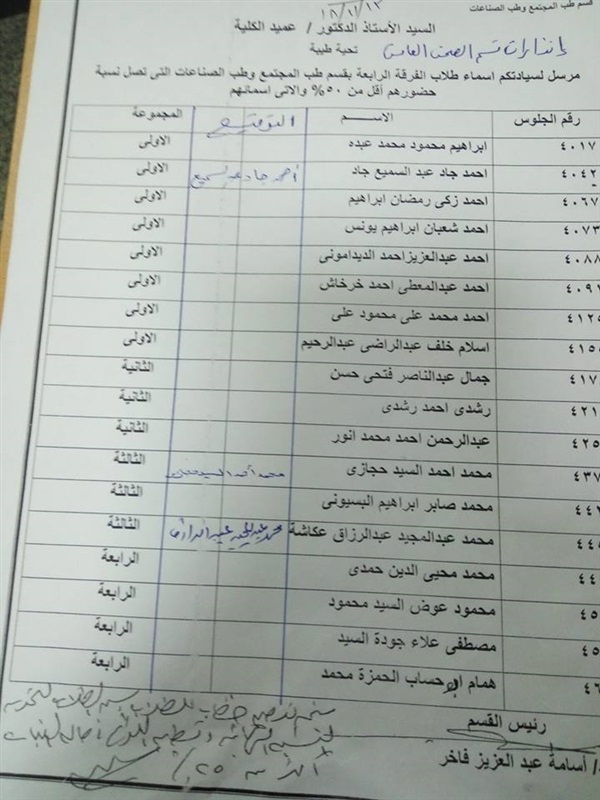 قسم طب المجتمع وطب الصناعات
السيد الأستاذ الدكتور / عميد الكلية
إنذارات قسم الصحة العامة
تحية طيبة
مرسل لسيادتكم اسماء طلاب الفرقة الرابعة بقسم طب المجتمع وطب الصناعات التى تصل نسبة
حضورهم أقل من ٥٠% والاتى اسمائهم
رقم الجلوس الاســـم التوقيع المجموعة
٤٠١٧ ابراهيم محمود محمد عبده الاولى
٤٠٤٢ احمد جاد عبد السميع جاد أحمد جاد عبد السميع الاولى
٤٠٦٧ احمد زكى رمضان ابراهيم الاولى
٤٠٧٣ احمد شعبان ابراهيم يونس الاولى
٤٠٨٨ احمد عبدالعزيزاحمد الديدامونى الاولى
٤٠٩٧ احمد عبدالمعطى احمد خرخاش الاولى
٤١٢٥ احمد محمد على محمود على الاولى
٤١٥٥ اسلام خلف عبدالراضى عبدالرحيم الاولى
٤١٧ جمال عبدالناصر فتحى حسن الثانية
٤٢١ رشدى احمد رشدى الثانية
٤٢٥ عبدالرحمن احمد محمد انور الثانية
٤٣٧ محمد احمد السيد حجازى محمد أحمد السيد الثالثة
٤٤ محمد صابر ابراهيم البسيونى الثالثة
٤٤ محمد عبدالمجيد عبدالرزاق عكاشة محمد عبدالمجيد عبدالرازق الثالثة
٤٤ محمد محيى الدين حمدى الرابعة
٤٥ محمود عوض السيد محمود الرابعة
٤٥ مصطفى علاء جودة السيد الرابعة
٤٦ همام حساب الحمزة محمد الرابعة
رئيس القسم
أسامة عبد العزيز فاخر